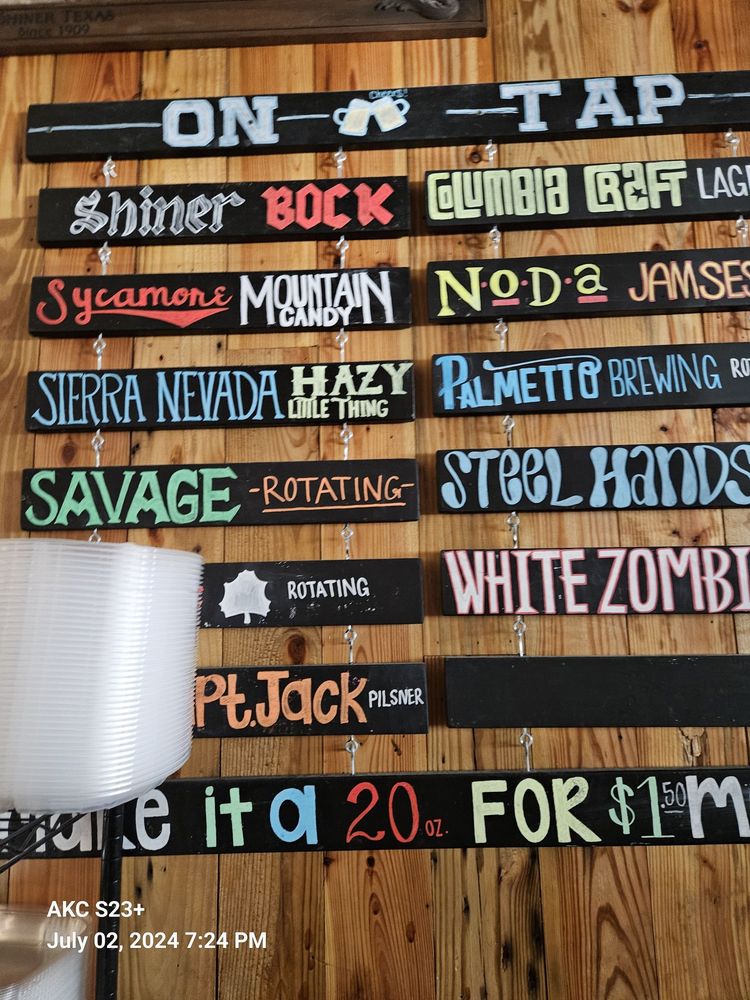 SHINER TEXAS
Since 1909
Cheers!
ON TAP
Shiner BOCK
COLUMBIA CRAFT LAG
Sycamore MOUNTAIN CANDY
NoDa JAMSES
SIERRA NEVADA HAZY LITTLE THING
PALMETTO BREWING RO
SAVAGE -ROTATING-
STEEL HANDS
ROTATING
WHITE ZOMBI
Pt.Jack PILSNER
ake it a 20 oz. FOR $1.50 M
AKC S23+
July 02, 2024 7:24 PM